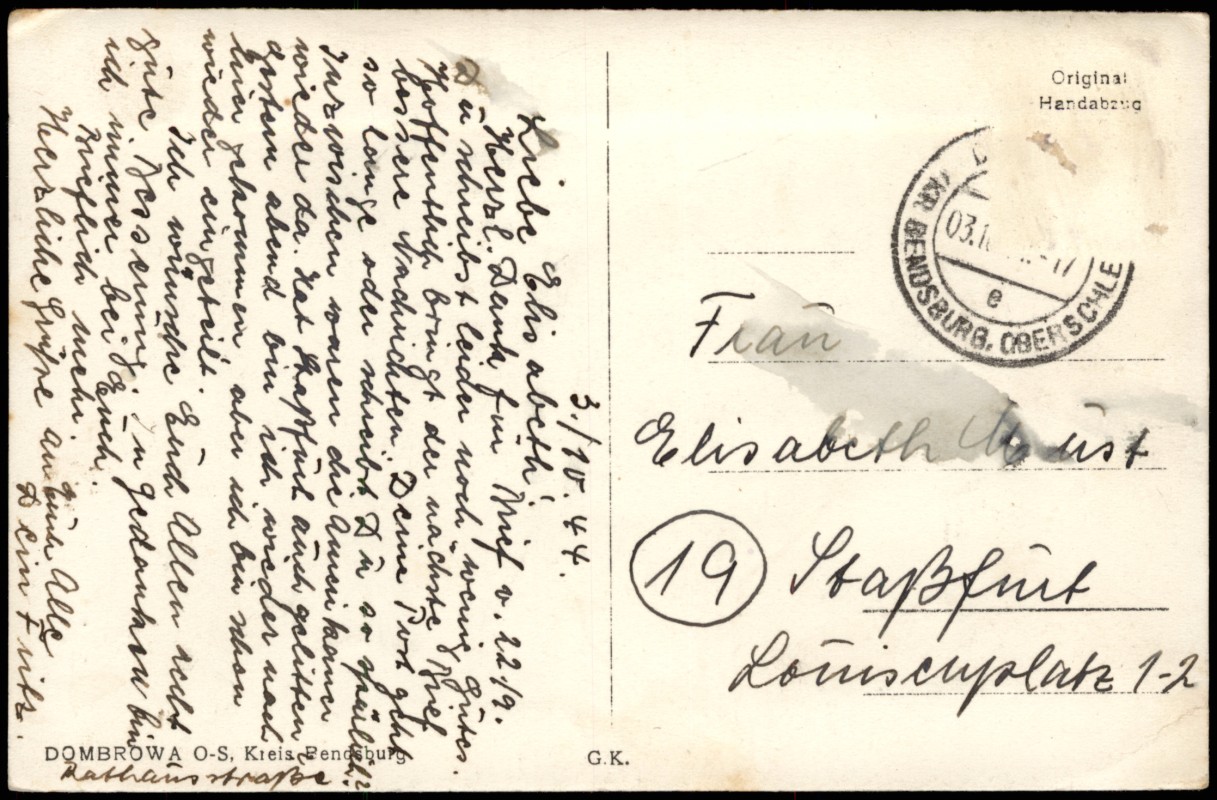 3./10. 44.
Liebe Elisabeth!
Herzl. Dank für Brief v. 22/9.
Du schreibst leider noch wenig Gutes.
Hoffentlich bringt der nächste Brief
bessere Nachrichten. Deine Post geht
so lange oder schreibst Du so spärlich?
Inzwischen waren die Amerikaner
wieder da. Hat Staßfurt auch gelitten?
gestern abend bin ich wieder nach
hier gekommen aber ich bin schon
wieder eingeteilt.
Ich wünsche Euch Allen recht
gute Besserung. In Gedanken bin
ich immer bei Euch.
Brieflich mehr.
Herzliche Grüße an Euch Alle
Dein Fritz.
DOMBROWA O-S, Kreis Bendsburg
Rathausstraße
G.K.
Original
Handabzug
03.10
17
e
KR BENDSBURG, OBERSCHLE
Frau
Elisabeth Must
19 Staßfurt
Louisenplatz 1-2